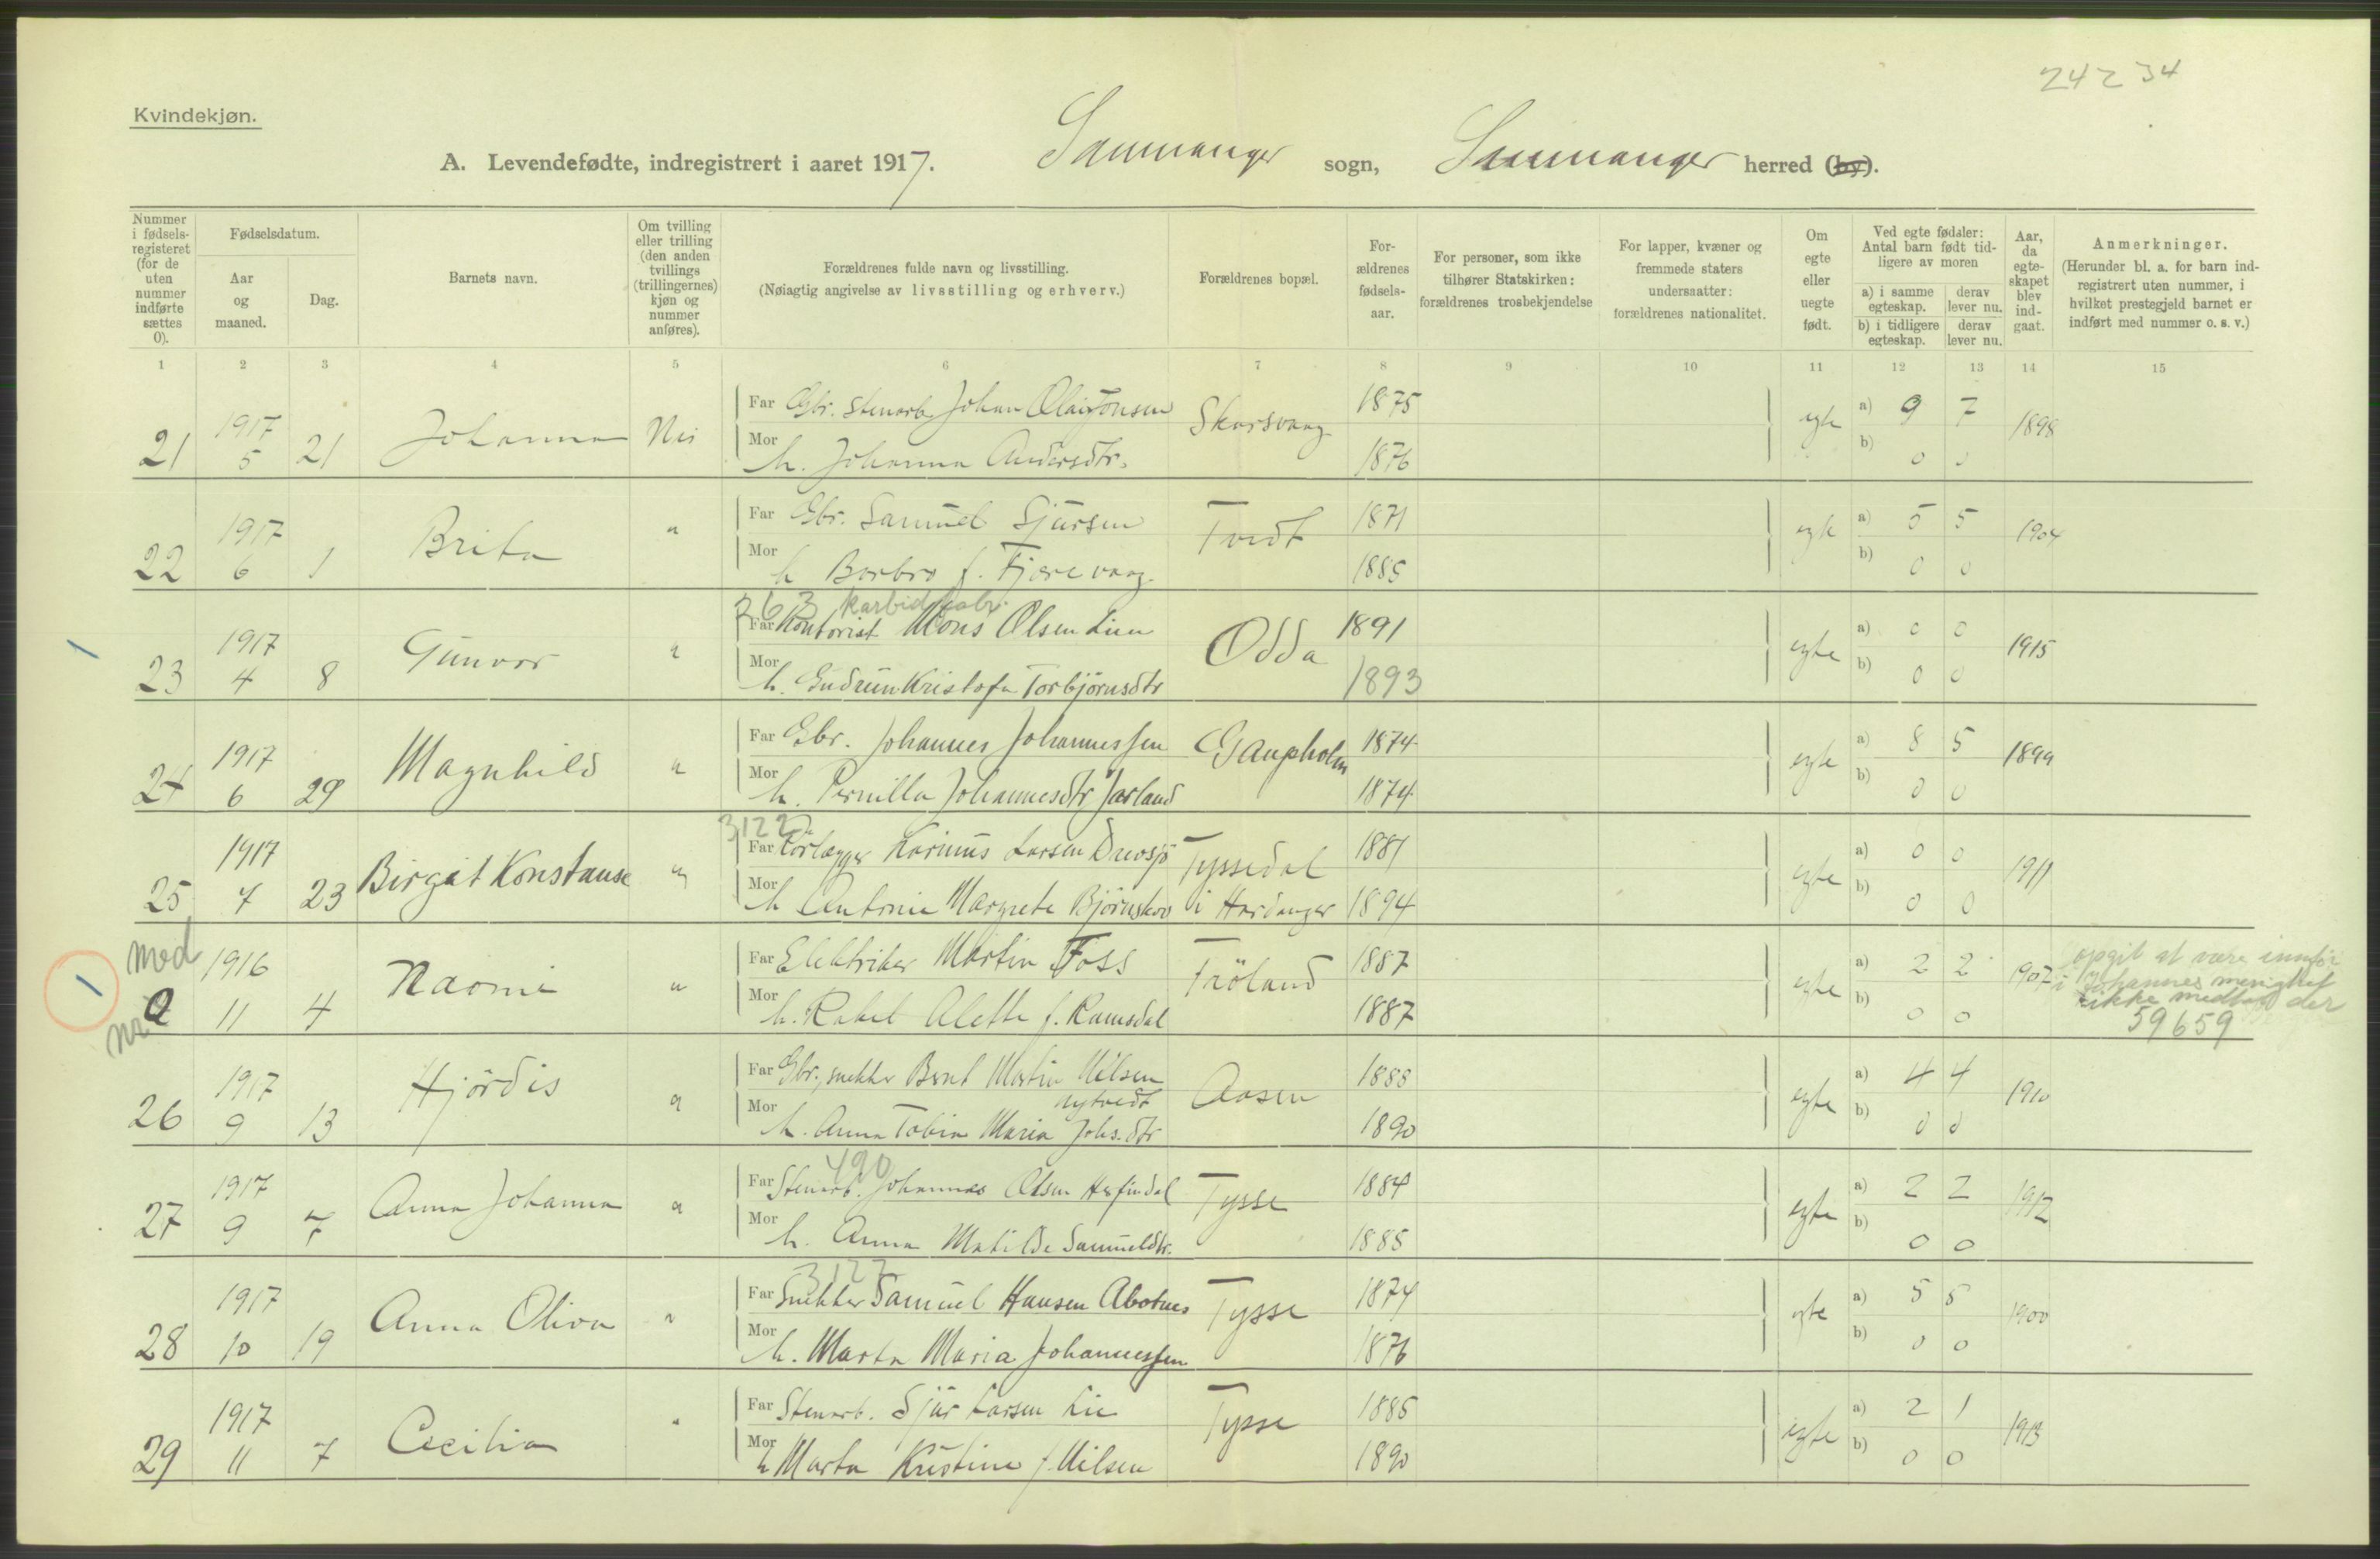 24234
Kvindekjøn.
A. Levendefødte, indregistrert i aaret 1917. Samnanger sogn, Samnanger herred (by).
Nummer i fødselsregisteret (for de uten nummer indførte sættes 0).
Fødselsdatum.
Aar og maaned.
Dag.
Barnets navn.
Om tvilling eller trilling (den anden tvillings (trillingernes) kjøn og nummer anføres).
Forældrenes fulde navn og livsstilling.
(Nøiagtig angivelse av livsstilling og erhverv.)
Forældrenes bopæl.
Forældrenes fødselsaar.
For personer, som ikke tilhører Statskirken: forældrenes trosbekjendelse
For lapper, kvæner og fremmede staters undersaatter: forældrenes nationalitet.
Om egte eller uegte født.
Ved egte fødsler: Antal barn født tidligere av moren
a) i samme egteskap. derav lever nu.
b) i tidligere egteskap. derav lever nu.
Aar, da egteskapet blev indgaat.
Anmerkninger.
(Herunder bl. a. for barn indregistrert uten nummer, i hvilket prestegjeld barnet er indført med nummer o. s. v.)
1 2 3 4 5 6 7 8 9 10 11 12 13 14 15
21 1917 5 21 Johanna Nei Far Gbr. stenarb. Johan Olai Tonsen Skarsvaag 1875 egte a) 9 7 1898
Mor h. Johanna Andersdtr. 1876 b) 0 0
22 1917 6 1 Brita " Far Gbr. Samuel Sjursen Tvedt 1871 egte a) 5 5 1904
Mor h Barbro f. Fjærevaag. 1885 b) 0 0
263 karbidfabr.
1 23 1917 4 8 Gunvor " Far Kontorist Mons Olsen Lien Odda 1891 egte a) 0 0 1915
Mor h. Gudrun Kristofa Torbjörnsdtr 1893 b) 0 0
24 1917 6 29 Magnhild " Far Gbr. Johannes Johannessen Gaupholm 1874 egte a) 8 5 1899
Mor h. Pernilla Johannesdtr Jarland 1874 b) 0 0
3122
25 1917 7 23 Birgit Konstanse " Far Rørlægger Karinus Larsen Drevsjö Tyssedal 1881 egte a) 0 0 1911
Mor h Antonie Margrete Björnskov i Hardanger 1894 b) 0 0
1 med nr 0 1916 11 4 Naomi " Far Elektriker Martin Foss Tröland 1887 egte a) 2 2 1907
Mor h. Rakel Alette f. Ramsdal 1887 b) 0 0
opgit at være innför
i Johannes menighet
ikke medtat der
59659
26 1917 9 13 Hjördis " Far Gbr., snekker Bernt Martin Nilsen Aasen 1888 egte a) 4 4 1910
Nytvedt
Mor h. Anna Tobia Maria Johs.dtr 1890 b) 0 0
490
27 1917 9 7 Anna Johanna " Far Stenarb. Johannes Olsen Herfindal Tysse 1884 egte a) 2 2 1912
Mor h. Anna Matilde Samueldtr. 1885 b) 0 0
3127
28 1917 10 19 Anna Oliva " Far Snekker Samuel Hansen Abotnes Tysse 1874 egte a) 5 5 1900
Mor h. Marta Maria Johannessen 1876 b) 0 0
29 1917 11 7 Cecilia " Far Stenarb. Sjur Larsen Lie Tysse 1885 egte a) 2 1 1913
Mor h Marta Kristine f. Nilsen 1890 b) 0 0